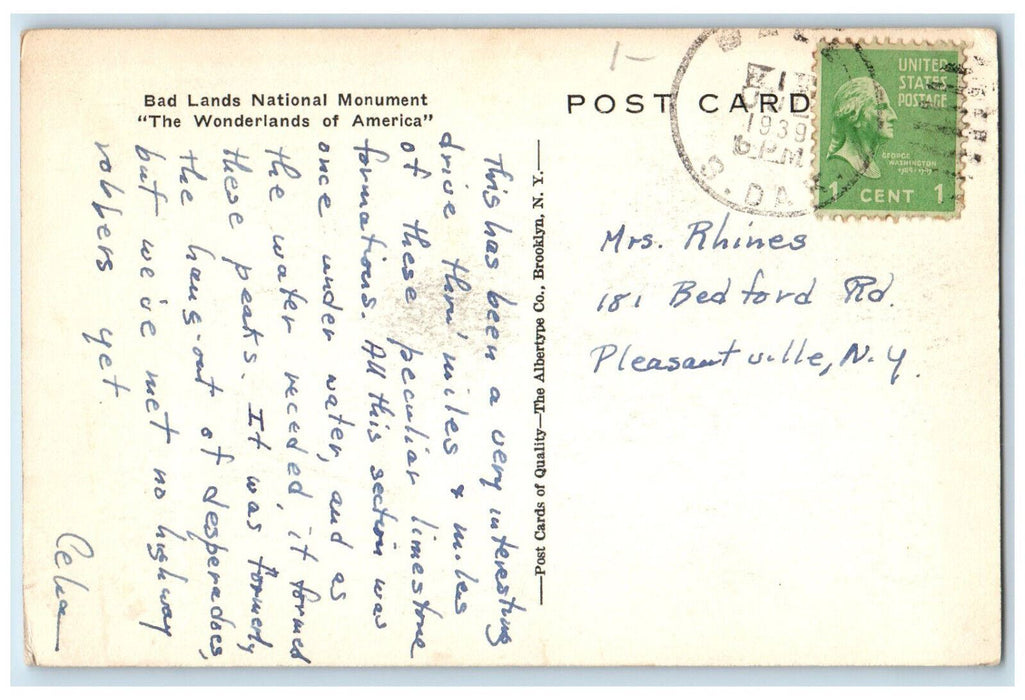 Bad Lands National Monument
"The Wonderlands of America"
This has been a very interesting
drive thru' miles & miles
of these peculiar limestone
formations. All this section was
once under water, and as
the water receded, it formed
these peaks. It was formerly
the hang-out of desperadoes,
but we've met no highway
robbers yet
Celia
—Post Cards of Quality—The Albertype Co., Brooklyn, N. Y.—
POST CARD
1939
PM
S. DAK
UNITED
STATES
POSTAGE
GEORGE
WASHINGTON
1789-1797
1 CENT 1
Mrs. Rhines
181 Bedford Rd.
Pleasantville, N.Y.